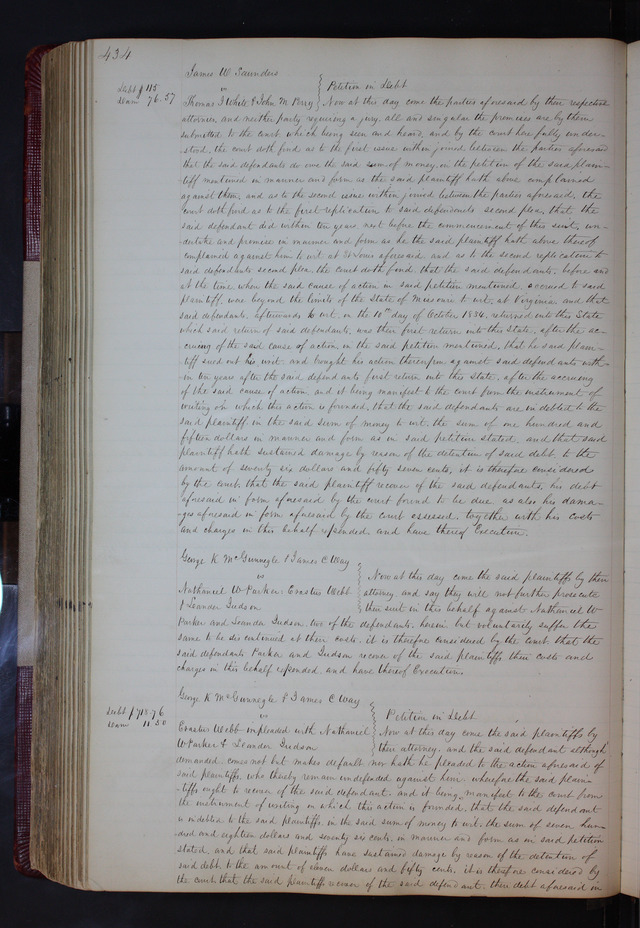 434
James W Saunders
vs } Petition in Debt
Debt $ 115
Dam 76.57
Thomas J White & John M Perry } Now at this day come the parties aforesaid by their respective
attornies, and neither party requiring a jury, all and singular the premises are by them
submitted to the court which being seen and heard, and by the court here fully under-
stood, the court doth find as to the first issue within joined between the parties aforesaid
that the said defendants do owe the said sum of money, on the petition of the said plain-
tiff mentioned in manner and form as the said plaintiff hath above complained
against them, and as to the second issue within joined between the parties aforesaid, the
court doth find as to the first replication to said defendants second plea, that the
said defendant did within ten years next before the commencement of this suit, un-
dertake and promise in manner and form as he the said plaintiff hath above thereof
complained against him to wit at St Louis aforesaid, and as to the second replication to
said defendants second plea, the court doth find, that the said defendants, before and
at the time when the said cause of action in said petition mentioned, accrued to said
plaintiff, were beyond the limits of the State of Missouri to wit, at Virginia, and that
said defendants, afterwards to wit, on the 10th day of October 1834, returned into this State
which said return of said defendants, was their first return into this State, after the ac-
cruing of the said cause of action, in the said petition mentioned, that he said plain-
tiff sued out his writ, and brought his action thereupon against said defendants with-
in ten years after the said defendants first return into this State, after the accruing
of the said cause of action, and it being manifest to the court from the instrument of
writing on which this action is founded, that the said defendants are indebted to the
said plaintiff, in the said sum of money to wit, the sum of one hundred and
fifteen dollars in manner and form as in said petition stated, and that said
plaintiff hath sustained damage by reason of the detention of said debt, to the
amount of seventy six dollars and fifty seven cents, it is therefore considered
by the court, that the said plaintiff recover of the said defendants, his debt
aforesaid in form aforesaid by the court found to be due, as also his dama-
ges aforesaid in form aforesaid by the court assessed, together with his costs
and charges in this behalf expended, and have thereof Execution.
George K McGunnegle & James C Way
vs } Now at this day come the said plaintiffs by their
Nathaniel W Parker Erastus Webb } attorney and say they will not further prosecute
& Leander Judson } their suit in this behalf against Nathaniel W
Parker and Leander Judson two of the defendants, herein but voluntarily suffer the
same to be discontinued at their costs, it is therefore considered by the court that the
said defendants Parker and Judson recover of the said plaintiffs their costs and
charges in this behalf expended, and have thereof Execution.
George K McGunnegle & James C Way
Debt $718.76
Dam 11.50
vs } Petition in Debt
Erastus Webb impleaded with Nathaniel } Now at this day come the said plaintiffs by
W Parker & Leander Judson } their attorney, and the said defendant although
demanded, comes not but makes default, nor hath he pleaded to the action aforesaid of
said plaintiffs, who thereby remain undefended against him, wherefore the said plain-
tiffs ought to recover of the said defendant, and it being manifest to the court from
the instrument of writing on which this action is founded, that the said defendant
is indebted to the said plaintiffs, in the said sum of money to wit, the sum of seven hun-
dred and eighteen dollars and seventy six cents, in manner and form as in said petition
stated, and that said plaintiffs have sustained damage by reason of the detention of
said debt, to the amount of eleven dollars and fifty cents, it is therefore considered by
the court, that the said plaintiffs recover of the said defendant, their debt aforesaid in